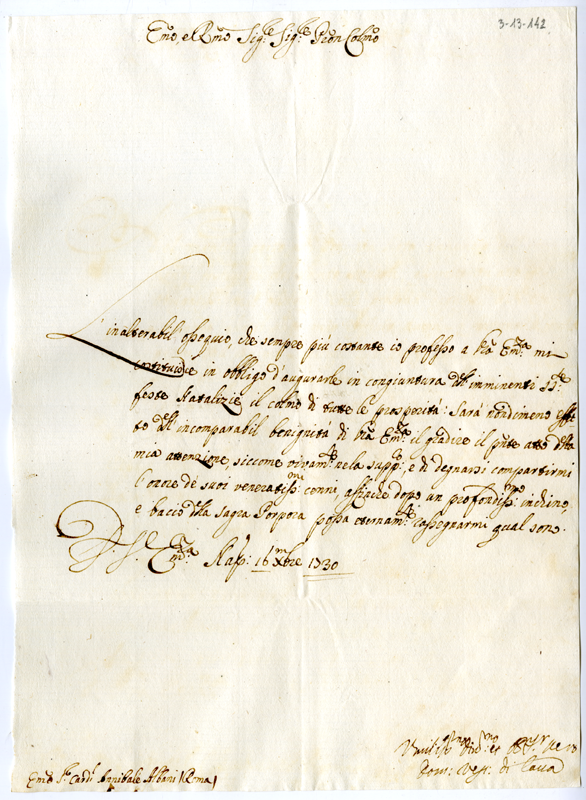 3-13-142
Emo, e Rmo Sig.re Sig.re Pron Colmo
L'inalterabil'ossequio, che sempre più costante io professo a Vra Em.za mi
costituisce in obbligo d'augurarle in congiuntura dell'imminenti SS.te
feste Natalizie il colmo di tutte le prosperità: Sarà condimeno effet-
to dell'incomparabil benignità di Vra Em.za il gradire il pnte atto della
mia attenzione, siccome vivam.te nela supp.co; e di degnarsi compartirmi
l'onore de suoi veneratiss.mi comni, affinche dopo un profondiss.mo inchino,
e bacio della Sagra Porpora possa eternam.te rassegnarmi qual sono.
Di V.ra Em.za Nap: 16 Xbre 1730
Umil.mo Div.mo ed Obl.mo Se.re
Dom: Vesc: di Cava
Emo S.r Card. Annibale Albani (Roma)